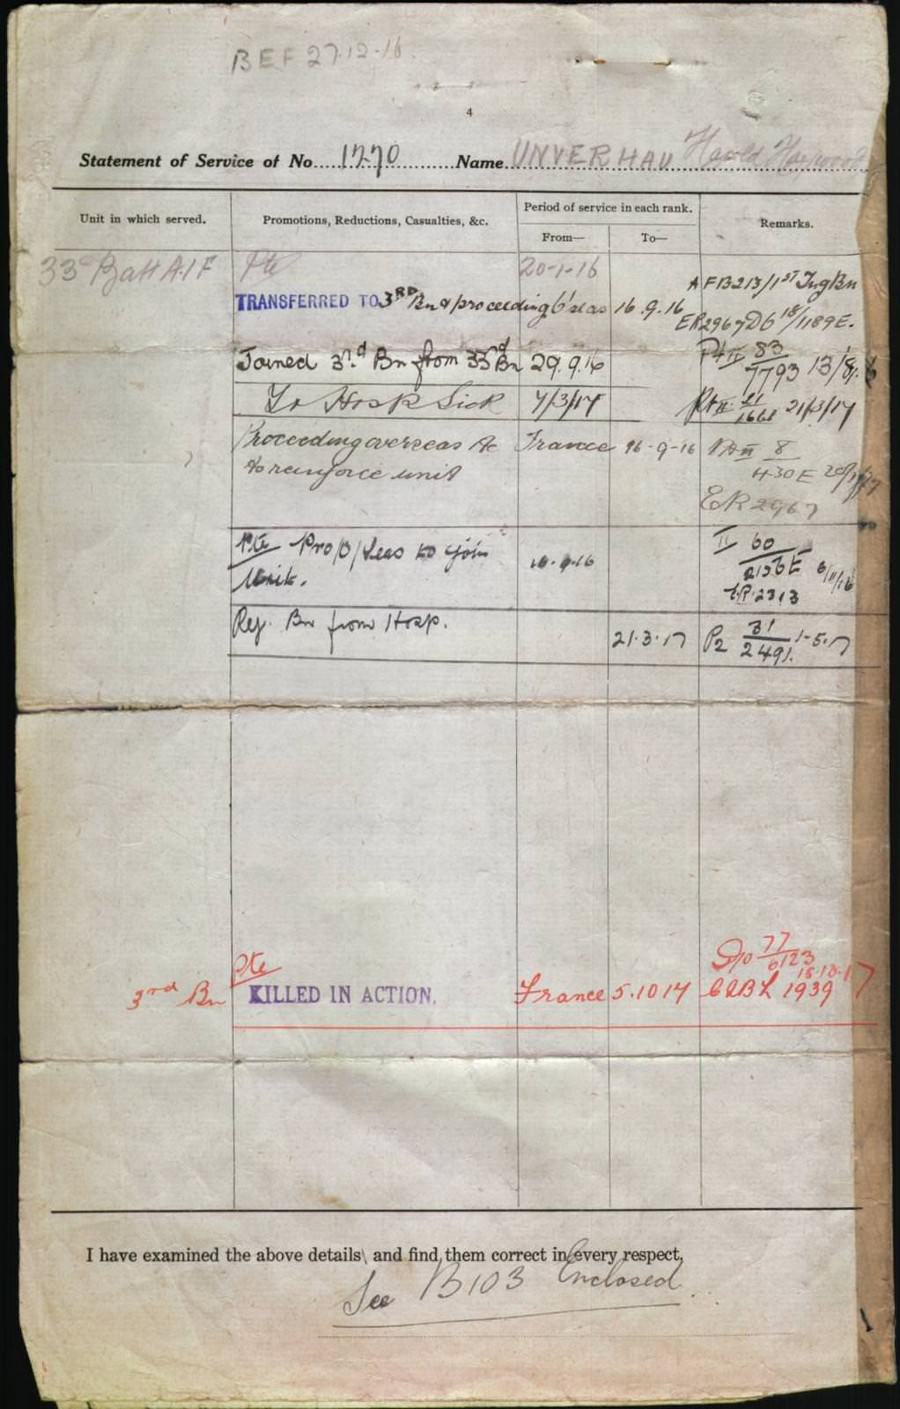 BEF 27-12-16.
4
Statement of Service of No. 1270 Name UNVERHAU Harold
Unit in which served.
Promotions, Reductions, Casualties, &c.
Period of service in each rank.
From—
To—
Remarks.
33rd Batt AIF Pte 20-1-16
AFB213/1st Tng Bn
TRANSFERRED TO 3RD Bn & proceeding o'seas 16.9.16
ER2967 D6 18/1189E.
Joined 3rd Bn from 33rd Bn 29.9.16 Pt II 83/7793 13/
To Hosp Sick 7/3/17 Pt II 21/1661 21/3/17
Proceeding overseas to France 16-9-16 Pt II 8/430E
to reinforce unit
ER 2967
Pte Pro/O/Seas to join II 60/2136E 6/11/16
Unit. ER 2313
Rej. Bn from Hosp. 21.3.17 P2 31/2491. 1-5-17
3rd Bn Pte KILLED IN ACTION. France 5.10.17 D/O 77/6123 15.10.17
1939
I have examined the above details and find them correct in every respect,
See B103 Enclosed.